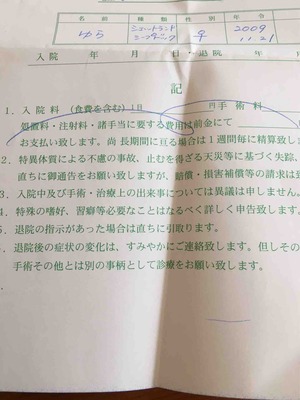 名前 種類 性別 年令
ゆう シェットランドシープドッグ ♀ 2009 11.21
入院 年 月 日・退院 年
記
1. 入院料（食費を含む）1日 円手術料
処置料・注射料・諸手当に要する費用は前金にて
お支払い致します。尚 長期間に亘る場合は1週間毎に精算致し
2. 特異体質による不慮の事故，止むを得ざる天災等に基づく失踪，
直ちに御通告をお願い致しますが，賠償・損害補償等の請求は致
3. 入院中及び手術・治療上の出来事については異議は申しません。
4. 特殊の嗜好，習癖等必要なことはなるべく詳しく申告致します。
5. 退院の指示があった場合は直ちに引取ります。
退院後の症状の変化は，すみやかにご連絡致します。但しその
手術その他とは別の事柄として診療をお願い致します。